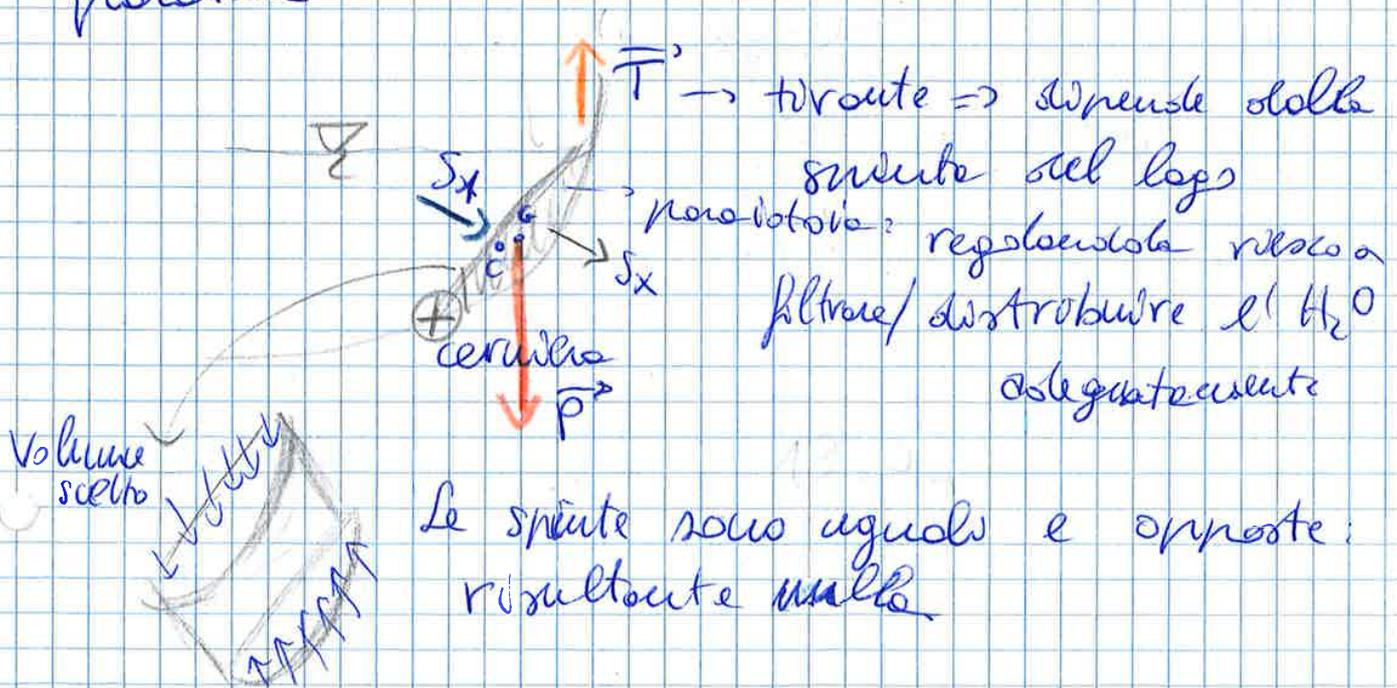 T → tirante => dipende dalla
spinta del lago
Sx
paratoia: regolandola riesco a
G
C
Sx
filtrare/distribuire l'H₂O
cerniera
adeguatamente
P
Volume
scelto
Le spinte sono uguali e opposte:
risultante nulla